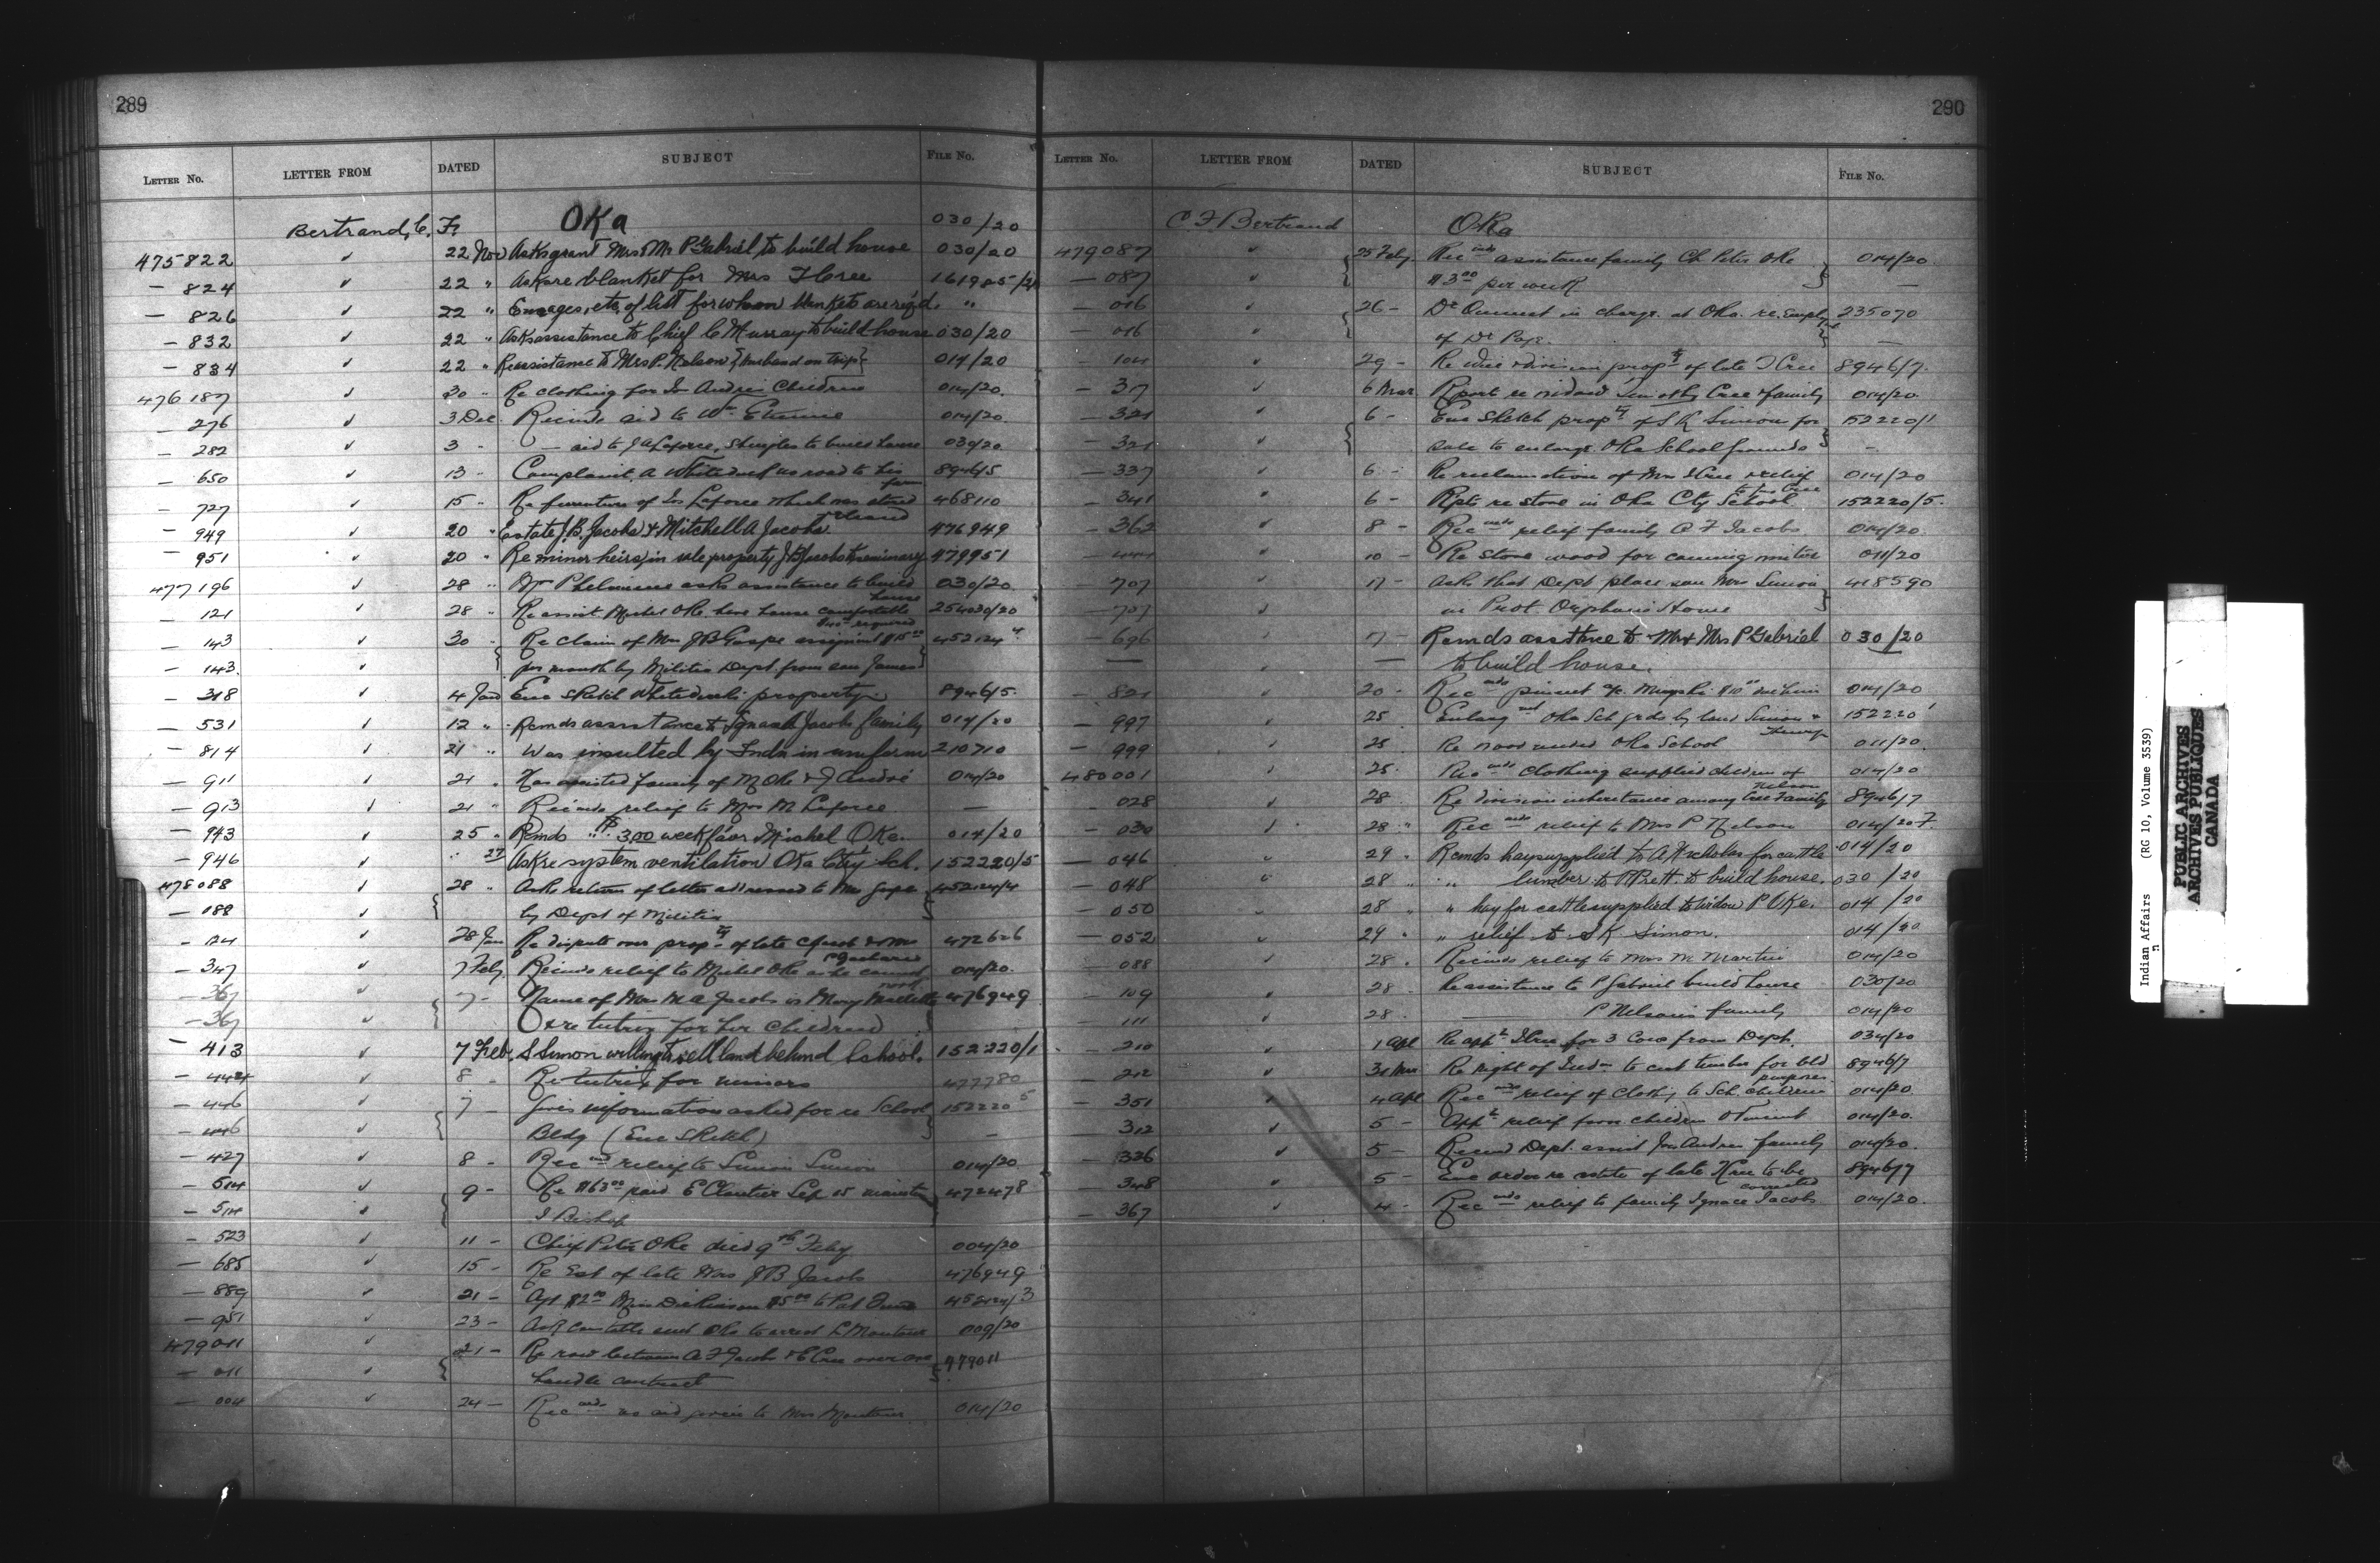 289
LETTER NO. LETTER FROM DATED SUBJECT FILE No.
Bertrand, C. F. OKa 030/20
475822 ✓ 22 Nov Asks grant Mrs & Mr P Gabriel to build house 030/20
— 824 ✓ 22 " Asks re blanket for Mrs I Cree 161985/2
— 826 ✓ 22 " ages, etc, of list for whom blankets are req'd. "
— 832 ✓ 22 " Ask assistance to Chief C Murray to build house 030/20
— 834 ✓ 22 " Re assistance to Mrs P. Nelson {husband on trip} 014/20
476187 ✓ 30 " Re clothing for Jos Andrew Children 014/20.
— 276 ✓ 3 Dec. Recmds aid to Wm Etienne 014/20.
— 282 ✓ 3 - — aid to J A Laforce, Shingles to build house 030/20.
— 650 ✓ 13 - Complaint A Whiteduck as road to his farm 8946/5
— 727 ✓ 15 - Re furniture of Jos Laforce which was 468110
— 949 20 " Estate J. B. Jacobs & Mitchell A Jacobs 476949
— 951 ✓ 20 " Re minor heirs, in sale property J B Jacobs to seminary 479951
477196 ✓ 28 " asks assistance to build house 030/20.
— 121 ✓ 28 " Re assist Michel Oke have house comfortable 254030/20
— 143 ✓ 30 " Re claim of Mrs J B Gaspe assigned $15.00 452124/4
— 143. ✓ per month by Militia Dept. from son James
— 318 ✓ 4 Jan Enc sketch Whiteduck property 8946/5.
— 531 ✓ 12 " Remds assistance to Ignace Jacobs family 014/20
— 814 ✓ 21 " Was insulted by Indn in uniform 210710
— 911 ✓ 21 " Has assisted family of M Oke & J André 014/20
— 913 ✓ 21 " Recmds relief to Mrs M Laforce —
— 943 ✓ 25 " Remds " $3.00 week Michel Oke. 014/20
— 946 ✓ " 27 Ask re system ventilation Oka Ctry Sch. 152220/5
478088 ✓ 28 " Asks return of letter addressed to Mrs Gaspe 452124/4
— 188 ✓ by Dept of Militia
— 124 ✓ 28 Jan Re dispute over propty of late Jacob & Mrs 472626
— 347 ✓ 7 Feby Recmds relief to Michel Oke as he cannot work 014/20.
— 367 ✓ 7 - Name of Mrs M A Jacobs is Mary 476949
— 367 ✓ & re tutrix for her Children
— 413 ✓ 7 Feb. S Simon willing to sell land behind School. 152220/1
— 444 ✓ 8 - Re tutrix for minors 477780
— 446 ✓ 7 - Gives information asked for re School 152220/5
— 446 ✓ Bldg (Enc Sketch) —
— 427 ✓ 8 - Recmds relief to Simon Simon 014/20
— 514 ✓ 9 - Re $63.00 paid E Cloutier Sep 15 472478
— 514 ✓ I Bishop
— 523 ✓ 11 - Chief Peter Oke died 9th Feby 004/20
— 685 ✓ 15 - Re Est of late Mrs J B Jacobs 476949
— 889 ✓ 21 - $2.00 Miss Dickinson $5.00 to Pat 452124/3
— 951 ✓ 23 - Ask constable sent Oka to arrest L Montour 009/20
479011 ✓ 21 - Re row between A F Jacobs & C Cree over axe 479011
— 011 ✓ handle contract
— 004 ✓ 24 — Recmds as aid given to Mrs Montour 014/20
290
LETTER NO. LETTER FROM DATED SUBJECT FILE No.
C F Bertrand OKa
479087 ✓ 25 Feby. Recmds assistance family Ch Peter Oke 014/20.
— 087 ✓ $3.00 per week —
— 016 ✓ 26 — Dr in charge at Oka. re. Employt 235070
— 016 ✓ of Dr —
— 104 ✓ 29 - Re division propty of late I Cree 8946/7.
— 37 ✓ 6 Mar Report re Timothy Cree & family 014/20
— 321 ✓ 6 - Enc Sketch propty of S K Simon for 152220/1
— 321 ✓ sale to enlarge Oka School grounds —
— 337 ✓ 6 - Re of Mrs I Cree relief 014/20
— 341 " 6 - Rpts re stove in Oka Cty School 152220/5.
— 362 ✓ 8 - Recmds relief family A F Jacobs 014/20.
— 444 ✓ 10 - Re stove wood for coming winter 011/20
— 707 ✓ 17 - Asks that Dept place son Mrs Simon 418590
— 707 ✓ in Prot. Orphans Home
— 696 ✓ 17 - Remds asstance to Mr & Mrs P Gabriel 030/20
— ✓ — to build house.
— 821 ✓ 20 - Recmds 014/20
— 997 ✓ 25 Enlargmt Oka Sch grds by land Simon & 152220/1
— 999 ✓ 25 Re Oka School 011/20.
480001 ✓ 25. Recmds clothing supplied children of Nelson 014/20
028 ✓ 28 Re division inheritance among Cree Family 8946/7
— 030 ✓ 28 " Recmds relief to Mrs P Nelson 014/20 F.
— 046 ✓ 29 " Remds hay supplied to A Nicholas for cattle 014/20
— 048 ✓ 28 " " lumber to to build house. 030/20
— 050 ✓ 28 " " hay for cattle supplied to Widow P Oke. 014/20
— 052 ✓ 29 " " relief to S K Simon. 014/20
— 088 ✓ 28 . Recmds relief to Mrs M Martin 014/20
— 109 ✓ 28 Re assistance to P Gabriel build house 030/20
— 111 ✓ 28 — P Nelson's family 014/20
— 210 ✓ 1 Apl Re I Cree for 3 Cows from Dept. 034/20
— 212 ✓ 31 Mar Re right of Indn to cut timber for bld purposes 8946/7
— 351 ✓ 4 Apl Recmds relief of Clothg to Sch. children 014/20.
— 312 ✓ 5 - relief from children 014/20.
— 336 ✓ 5 - Recmd Dept. assist Jos Andrew family 014/20.
— 348 ✓ 5 - Enc order re estate of late I Cree to be corrected 8946/7
— 367 ✓ 4 - Recmds relief to family Ignace Jacobs 014/20.
Indian Affairs (RG 10, Volume 3539)
PUBLIC ARCHIVES
ARCHIVES PUBLIQUES
CANADA